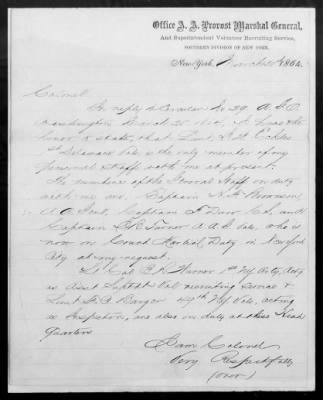 Office A. A. Provost Marshal General,
And Superintendent Volunteer Recruiting Service,
SOUTHERN DIVISION OF NEW YORK,
New York, March 1864
Colonel
In reply to Circular No 29 A.G.O.
Washington March 25 1864, I have the
honor to state, that Lieut.
1st Delaware Vols is the only member of my
personal staff with me at present.
The members of the General Staff on duty
with me are. Captain
A. A. Genl, Captain and
Captain Turner A.A.G. Vols, who is
now on Court Martial Duty in New York
City at my request.
Lt Col. 1st NY Arty, Acty
as Asst Supdt Vol recruiting service &
Lieut F. C. Barger NY Vols, acting
as Inspector, are also on duty at these Head
Quarters
I am Colonel
Very Respectfully
(over)